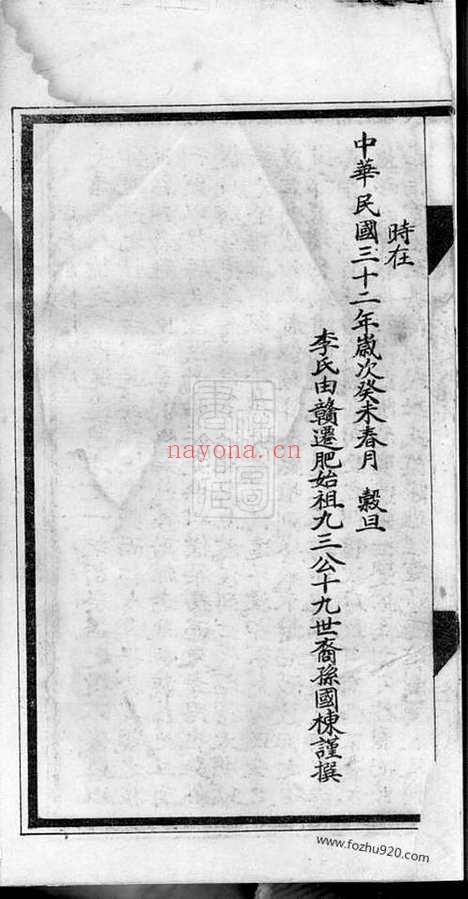 時在
中華民國三十二年歲次癸未春月 穀旦
李氏由贛遷肥始祖九三公十九世裔孫國棟謹撰
nayona.cn
www.fozhu920.com